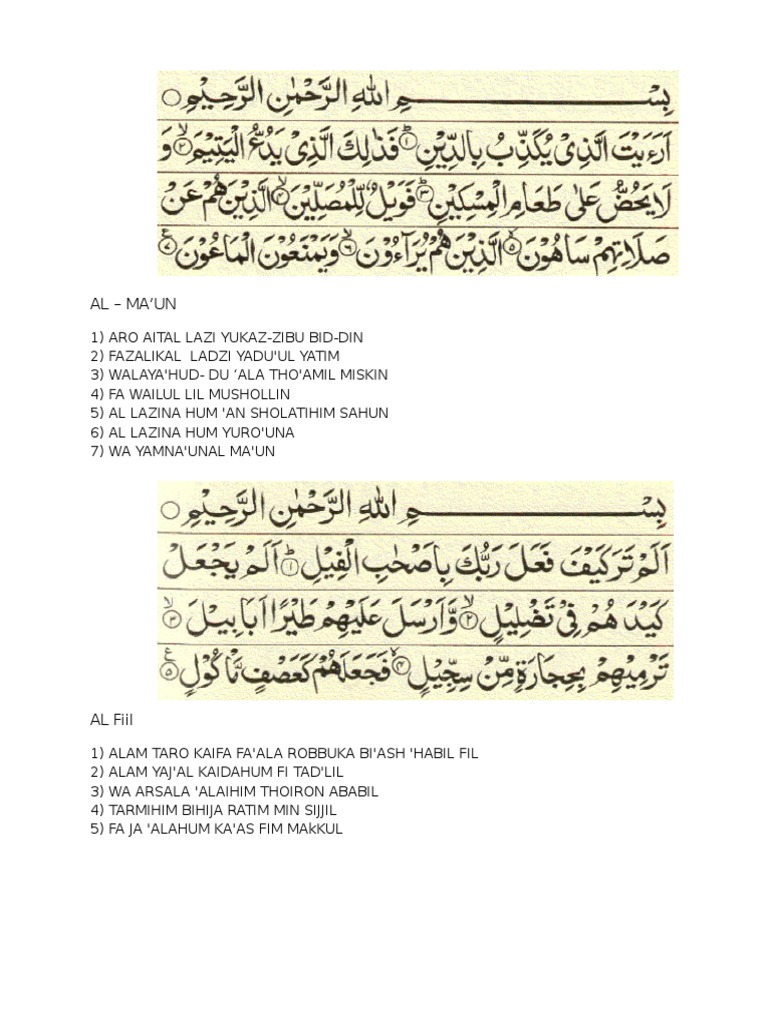 بِسْــــــــــمِ اللهِ الرَّحْمٰنِ الرَّحِيْمِ ○
اَرَءَيْتَ الَّذِىْ يُكَذِّبُ بِالدِّيْنِ ۱ فَذٰلِكَ الَّذِىْ يَدُعُّ الْيَتِيْمَ ۲ وَ
لَا يَحُضُّ عَلٰى طَعَامِ الْمِسْكِيْنِ ۳ فَوَيْلٌ لِّلْمُصَلِّيْنَ ۴ الَّذِيْنَ هُمْ عَنْ
صَلَاتِهِمْ سَاهُوْنَ ۵ الَّذِيْنَ هُمْ يُرَآءُوْنَ ۶ وَيَمْنَعُوْنَ الْمَاعُوْنَ ۷
AL – MA’UN
1) ARO AITAL LAZI YUKAZ-ZIBU BID-DIN
2) FAZALIKAL LADZI YADU'UL YATIM
3) WALAYA'HUD- DU ‘ALA THO'AMIL MISKIN
4) FA WAILUL LIL MUSHOLLIN
5) AL LAZINA HUM 'AN SHOLATIHIM SAHUN
6) AL LAZINA HUM YURO'UNA
7) WA YAMNA'UNAL MA'UN
بِسْــــــــــمِ اللهِ الرَّحْمٰنِ الرَّحِيْمِ ○
اَلَمْ تَرَ كَيْفَ فَعَلَ رَبُّكَ بِاَصْحٰبِ الْفِيْلِ ۱ اَلَمْ يَجْعَلْ
كَيْدَ هُمْ فِىْ تَضْلِيْلٍ ۲ وَّاَرْسَلَ عَلَيْهِمْ طَيْرًا اَبَابِيْلَ ۳
تَرْمِيْهِمْ بِحِجَارَةٍ مِّنْ سِجِّيْلٍ ۴ فَجَعَلَهُمْ كَعَصْفٍ مَّاْكُوْلٍ ۵
AL Fiil
1) ALAM TARO KAIFA FA'ALA ROBBUKA BI'ASH 'HABIL FIL
2) ALAM YAJ'AL KAIDAHUM FI TAD'LIL
3) WA ARSALA 'ALAIHIM THOIRON ABABIL
4) TARMIHIM BIHIJA RATIM MIN SIJJIL
5) FA JA 'ALAHUM KA'AS FIM MAkKUL